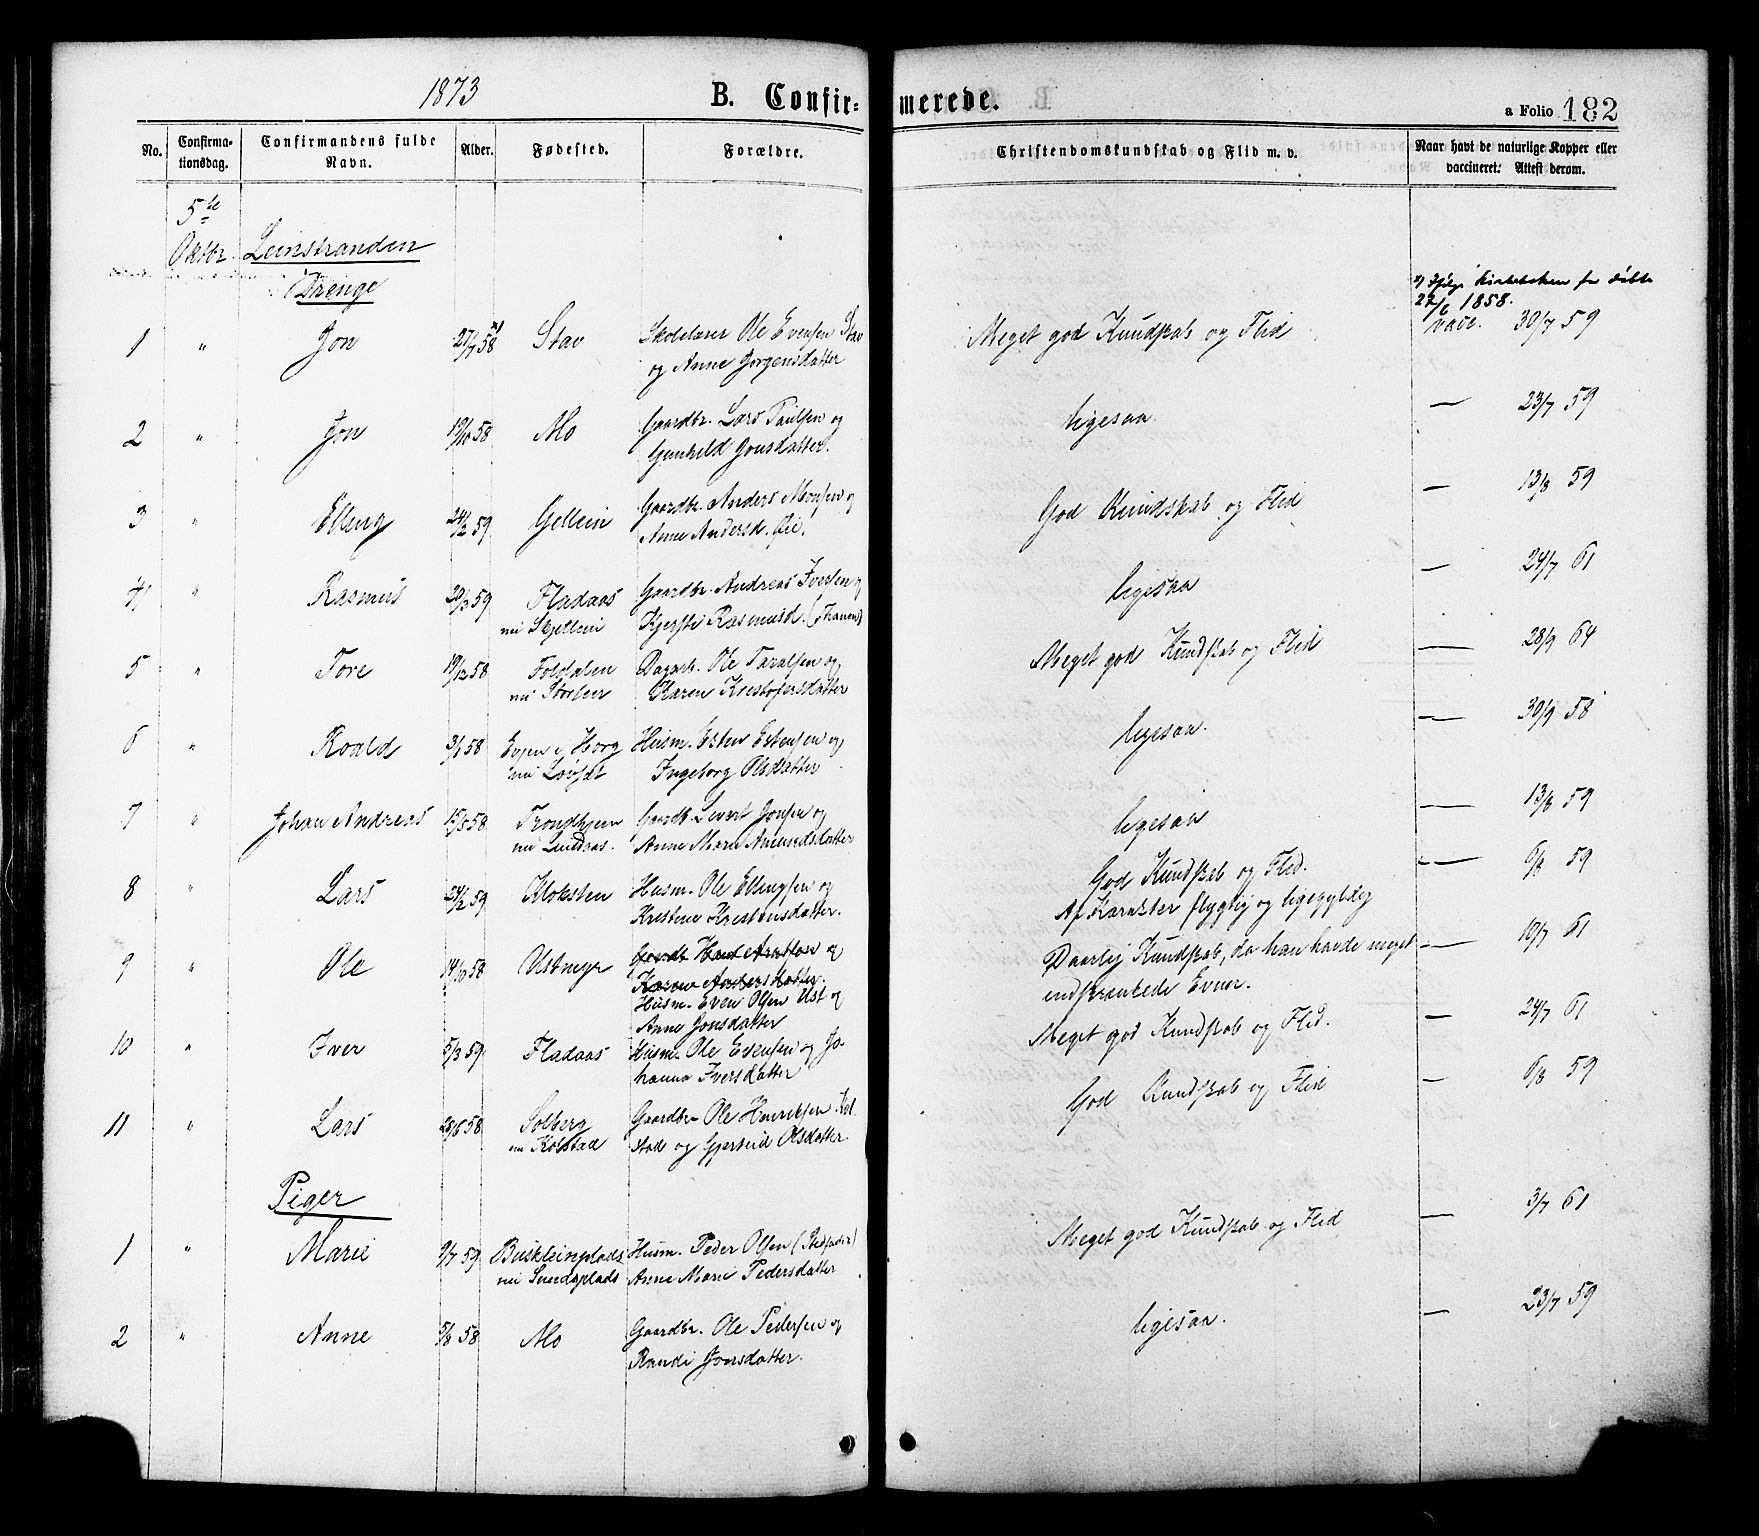 1873
B. Confir=
merede.
a Folio 182
No.
Confirma-
tionsdag.
Confirmandens fulde
Navn.
Alder.
Fødested.
Forældre.
Christendomskundskab og Flid m. v.
Naar havt de naturlige Kopper eller
vaccineret: Attest derom.
5te
Oktbr. Leinstranden
Drenge
x) Ifølge Kirkeboken for døbte
1858.
1 " Jon 27/7 58 x) Stav Skolelærer Ole Evensen Stav
og Anne Jørgensdatter
Meget god Kundskab og Flid vacc. 30/7 59
2 " Jon 19/10 58 Mo Gaardbr. Lars Paulsen og
Gunhild Jonsdatter.
ligesaa. — 23/7 59
3 " Elling 24/2 59 Gellein Gaardbr. Anders Monsen og
Anne Andersd. Øie.
God Kundskab og Flid — 13/8 59
4 " Rasmus 20/3 59 Fladaas
nu Skjellein
Gaardbr. Andreas Iversen og
Kjersti Rasmusd.
ligesaa — 24/7 61
5 " Tore 19/12 58 Foldalen
nu Storler
Dagark. Ole Taralsen og
Karen Kristofersdatter
Meget god Kundskab og Flid — 28/9 64
6 " Roald 3/1 58 Evjen i Horg
nu
Husm. Esten Estensen og
Ingeborg Olsdatter
ligesaa. — 30/9 58
7 " Johan Andreas 15/5 58 Trondhjem
nu Lundaas.
Gaardb. Sivert Jonsen og
Anne Marie Amundsdatter
ligesaa — 13/8 59
8 " Lars 24/2 59 Kloksten Husm. Ole Ellingsen og
Kristine Kristensdatter.
God Kundskab og Flid.
Af Karakter flygtig og ligegyldig
— 6/8 59
9 " Ole 14/10 58 Ustmyr
Karen Andersdatter.
Husm. Even Olsen Ust og
Anne Jonsdatter
Daarlig Kundskab, da han havde meget
indskrænkede Evner.
— 10/7 61
10 " Iver 5/3 59 Fladaas Husm. Ole Evensen og Jo-
hanna Iversdatter
Meget god Kundskab og Flid. — 24/7 61
11 " Lars 28/8 58 Solberg
nu Kolstad
Gaardbr. Ole Henriksen Kol-
stad og Gjertrud Olsdatter
God Kundskab og Flid — 6/8 59
Piger
1 " Marie 2/7 59 Buskleinplads
nu Sundsplads
Husm. Peder Olsen (Stedfader)
Anne Marie Pedersdatter
Meget god Kundskab og Flid — 3/7 61
2 " Anne 5/8 58 Mo Gaardbr. Ole Pedersen og
Randi Jonsdatter.
ligesaa. — 23/7 59